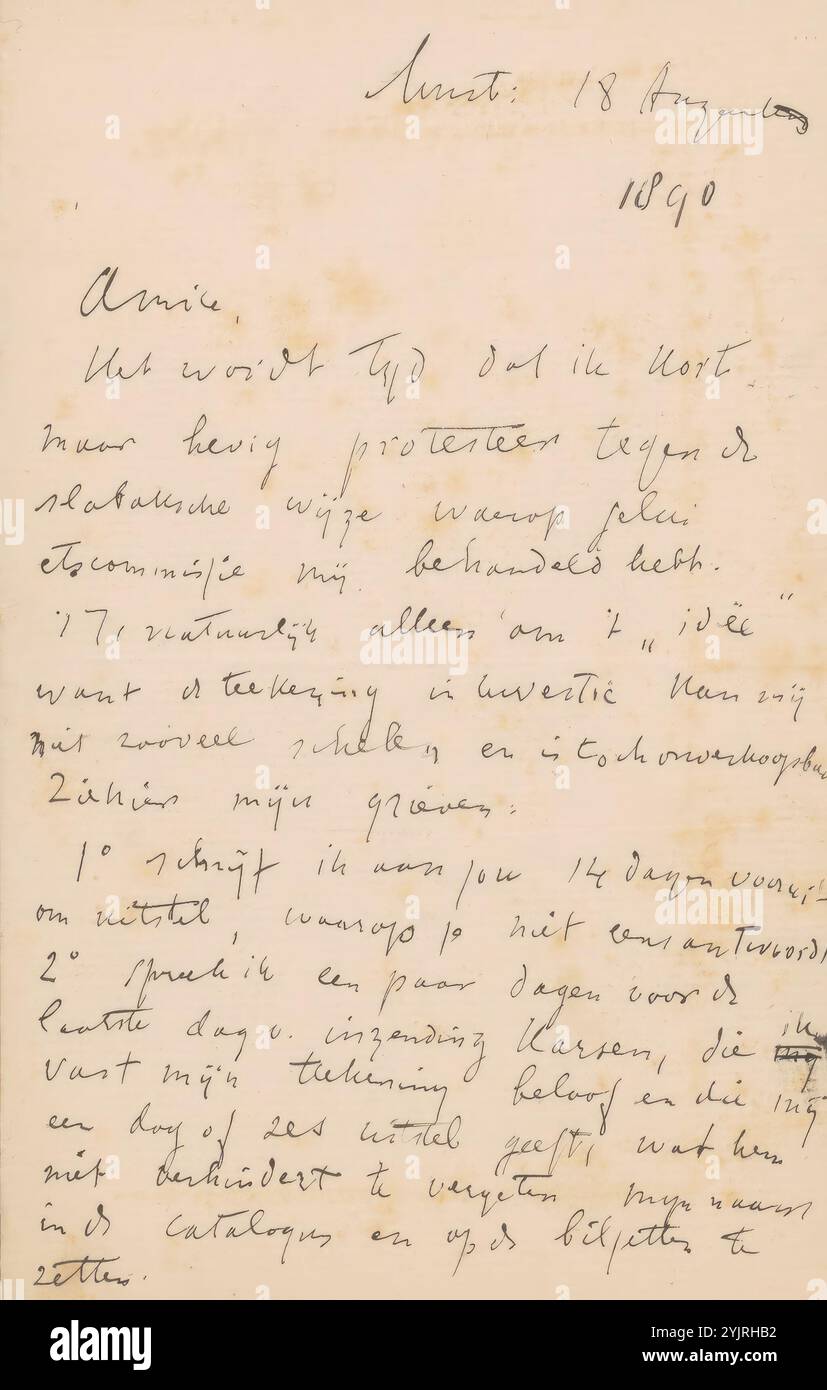 Amst: 18 Augustus
1890
Amice,
Het wordt tyd dat ik kort
maar hevig protesteer tegen de
slabaksche wijze waarop
etscommissie mij behandeld hebt.
't Is natuurlijk alleen om 't „idée"
want de teekening in kwestie kan mij
niet zooveel schelen en is toch onverkoopbaar
Ziehier mijn grieven:
1° schrijf ik aan jou 14 dagen vooruit
om uitstel, waarop je niet eens antwoordt
2° spreek ik een paar dagen voor de
laatste dag v. inzending Karsen, die ik
vast mijn teekening beloof en die mij
een dag of zes uitstel geeft, wat hem
niet verhindert te vergeten mijn naam
in de catalogus en op de biljetten te
zetten.
alamy
Image ID: 2YJRHB2
www.alamy.com